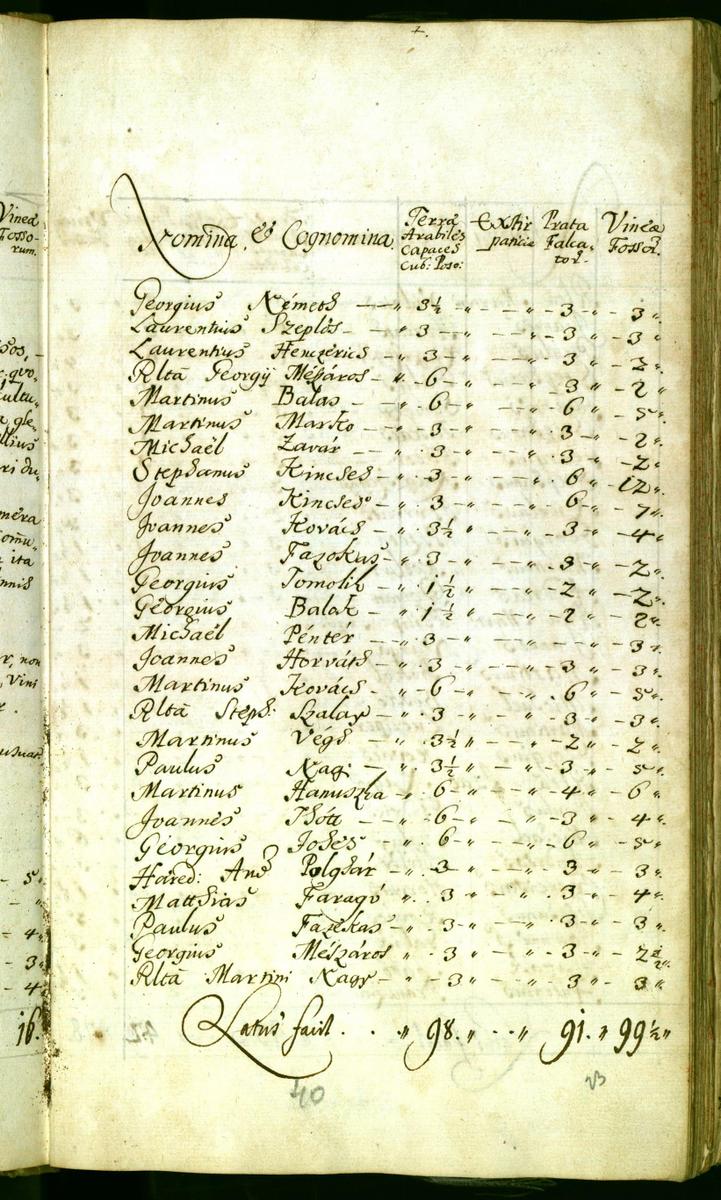 4.
Vineæ
Fossorum.
Nomina, & Cognomina. Terræ Arabiles Capaces Cub: Poso: Exstirpaticiæ Prata Falcator. Vineæ Fossor.
Georgius Németh — " 3½ " — " 3 " 3 "
Laurentius Szeplős — " 3 " — " 3 " 3 "
Laurentius Henczerics " 3 " — " 3 " 2 "
Rlta Georgij Mészáros — " 6 " — " 3 " 2 "
Martinus Balas — " 6 " — " 6 " 5 "
Martinus Marko — " 3 " — " 3 " 2 "
Michaël Zavár — " 3 " — " 3 " 2 "
Stephanus Kincses — " 3 " — " 6 " 12 "
Joannes Kincses " 3 " — " 6 " 7 "
Joannes Kovács " 3½ " — " 3 " 4 "
Joannes Fazokas — " 3 " — " 3 " 2 "
Georgius Tomolik " 1½ " — " 2 " 2 "
Georgius Balak " 1½ " — " 2 " 2 "
Michaël Péntér — " 3 — " — — " 3 "
Joannes Horváth — " 3 " — " 3 " 3 "
Martinus Kovács — " 6 " — " 6 " 5 "
Rlta Steph: Szalay — " 3 " — " 3 " 3 "
Martinus Végh — " 3½ " — " 2 " 2 "
Paulus Nagi — " 3½ " — " 3 " 5 "
Martinus Hanuszka — " 6 " — " 4 " 6 "
Joannes Thótt — " 6 " — " 3 " 4 "
Georgius " 6 " — " 6 " 5 "
Hæred: And Polghár — " 3 " — " 3 " 3 "
Matthias Faragó " 3 " — " 3 " 4 "
Paulus Fazekas — " 3 " — " 3 " 3 "
Georgius Mészáros " 3 " — " 3 " 2½ "
Rlta Martini Nagy — " 3 " — " 3 " 3 "
Latus facit . . . " 98. " . . " 91. " 99½ "
40
5
4
3
4
16.